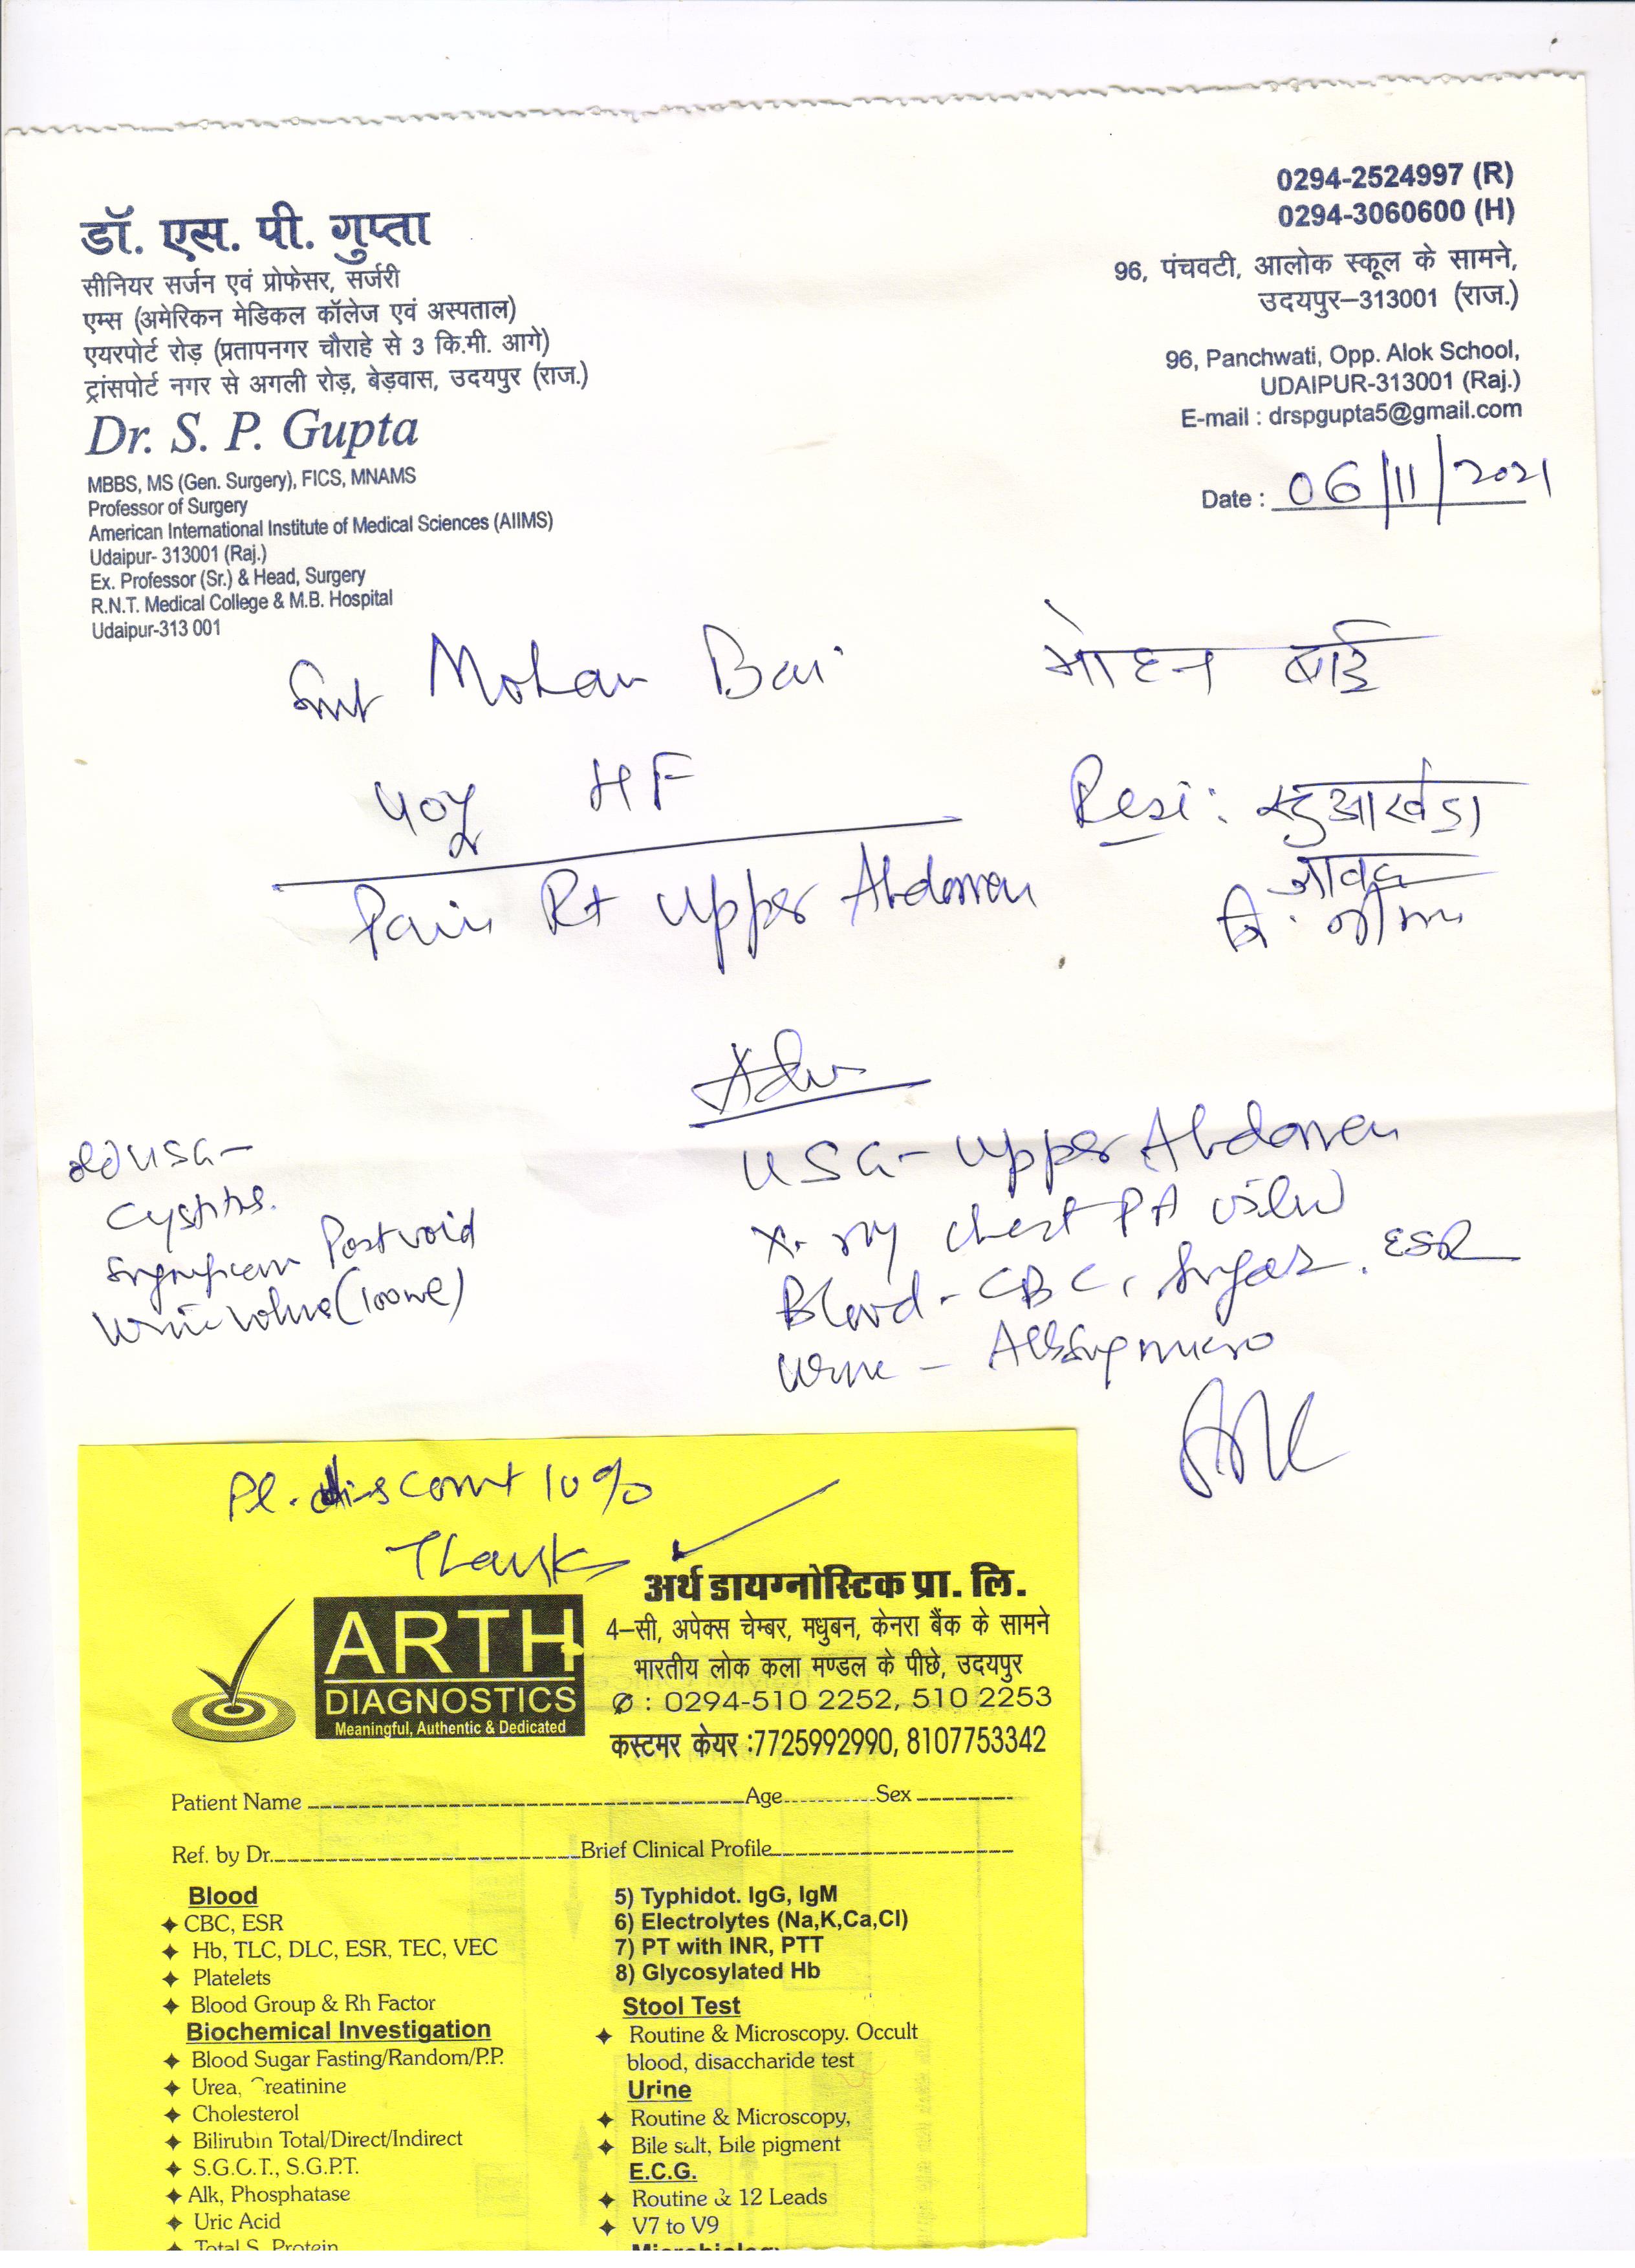 डॉ. एस. पी. गुप्ता
सीनियर सर्जन एवं प्रोफेसर, सर्जरी
एम्स (अमेरिकन मेडिकल कॉलेज एवं अस्पताल)
एयरपोर्ट रोड़ (प्रतापनगर चौराहे से 3 कि.मी. आगे)
ट्रांसपोर्ट नगर से अगली रोड़, बेड़वास, उदयपुर (राज.)
Dr. S. P. Gupta
MBBS, MS (Gen. Surgery), FICS, MNAMS
Professor of Surgery
American International Institute of Medical Sciences (AIIMS)
Udaipur- 313001 (Raj.)
Ex. Professor (Sr.) & Head, Surgery
R.N.T. Medical College & M.B. Hospital
Udaipur-313 001
0294-2524997 (R)
0294-3060600 (H)
96, पंचवटी, आलोक स्कूल के सामने,
उदयपुर–313001 (राज.)
96, Panchwati, Opp. Alok School,
UDAIPUR-313001 (Raj.)
E-mail : drspgupta5@gmail.com
Date : 06/11/2021
Smt Mohan Bai
मोहन बाई
40y HF
Resi:
जावद
जि.
Pain Rt Upper Abdomen
Adv
USG- Upper Abdomen
X-ray chest PA view
Blood - CBC, Sugar, ESR
Urine - Alb Sug micro
Old USG-
Cystitis.
Significant Postvoid
Urine Volume (100ml)
Pl. discount 10%
Thanks
ARTH
DIAGNOSTICS
Meaningful, Authentic & Dedicated
अर्थ डायग्नोस्टिक प्रा. लि.
4–सी, अपेक्स चेम्बर, मधुबन, केनरा बैंक के सामने
भारतीय लोक कला मण्डल के पीछे, उदयपुर
: 0294-510 2252, 510 2253
कस्टमर केयर :7725992990, 8107753342
Patient Name Age Sex
Ref. by Dr. Brief Clinical Profile
Blood
CBC, ESR
Hb, TLC, DLC, ESR, TEC, VEC
Platelets
Blood Group & Rh Factor
Biochemical Investigation
Blood Sugar Fasting/Random/P.P.
Urea, Creatinine
Cholesterol
Bilirubin Total/Direct/Indirect
S.G.O.T., S.G.P.T.
Alk, Phosphatase
Uric Acid
Total S. Protein
5) Typhidot. IgG, IgM
6) Electrolytes (Na,K,Ca,Cl)
7) PT with INR, PTT
8) Glycosylated Hb
Stool Test
Routine & Microscopy. Occult
blood, disaccharide test
Urine
Routine & Microscopy,
Bile salt, bile pigment
E.C.G.
Routine & 12 Leads
V7 to V9
Microbiology